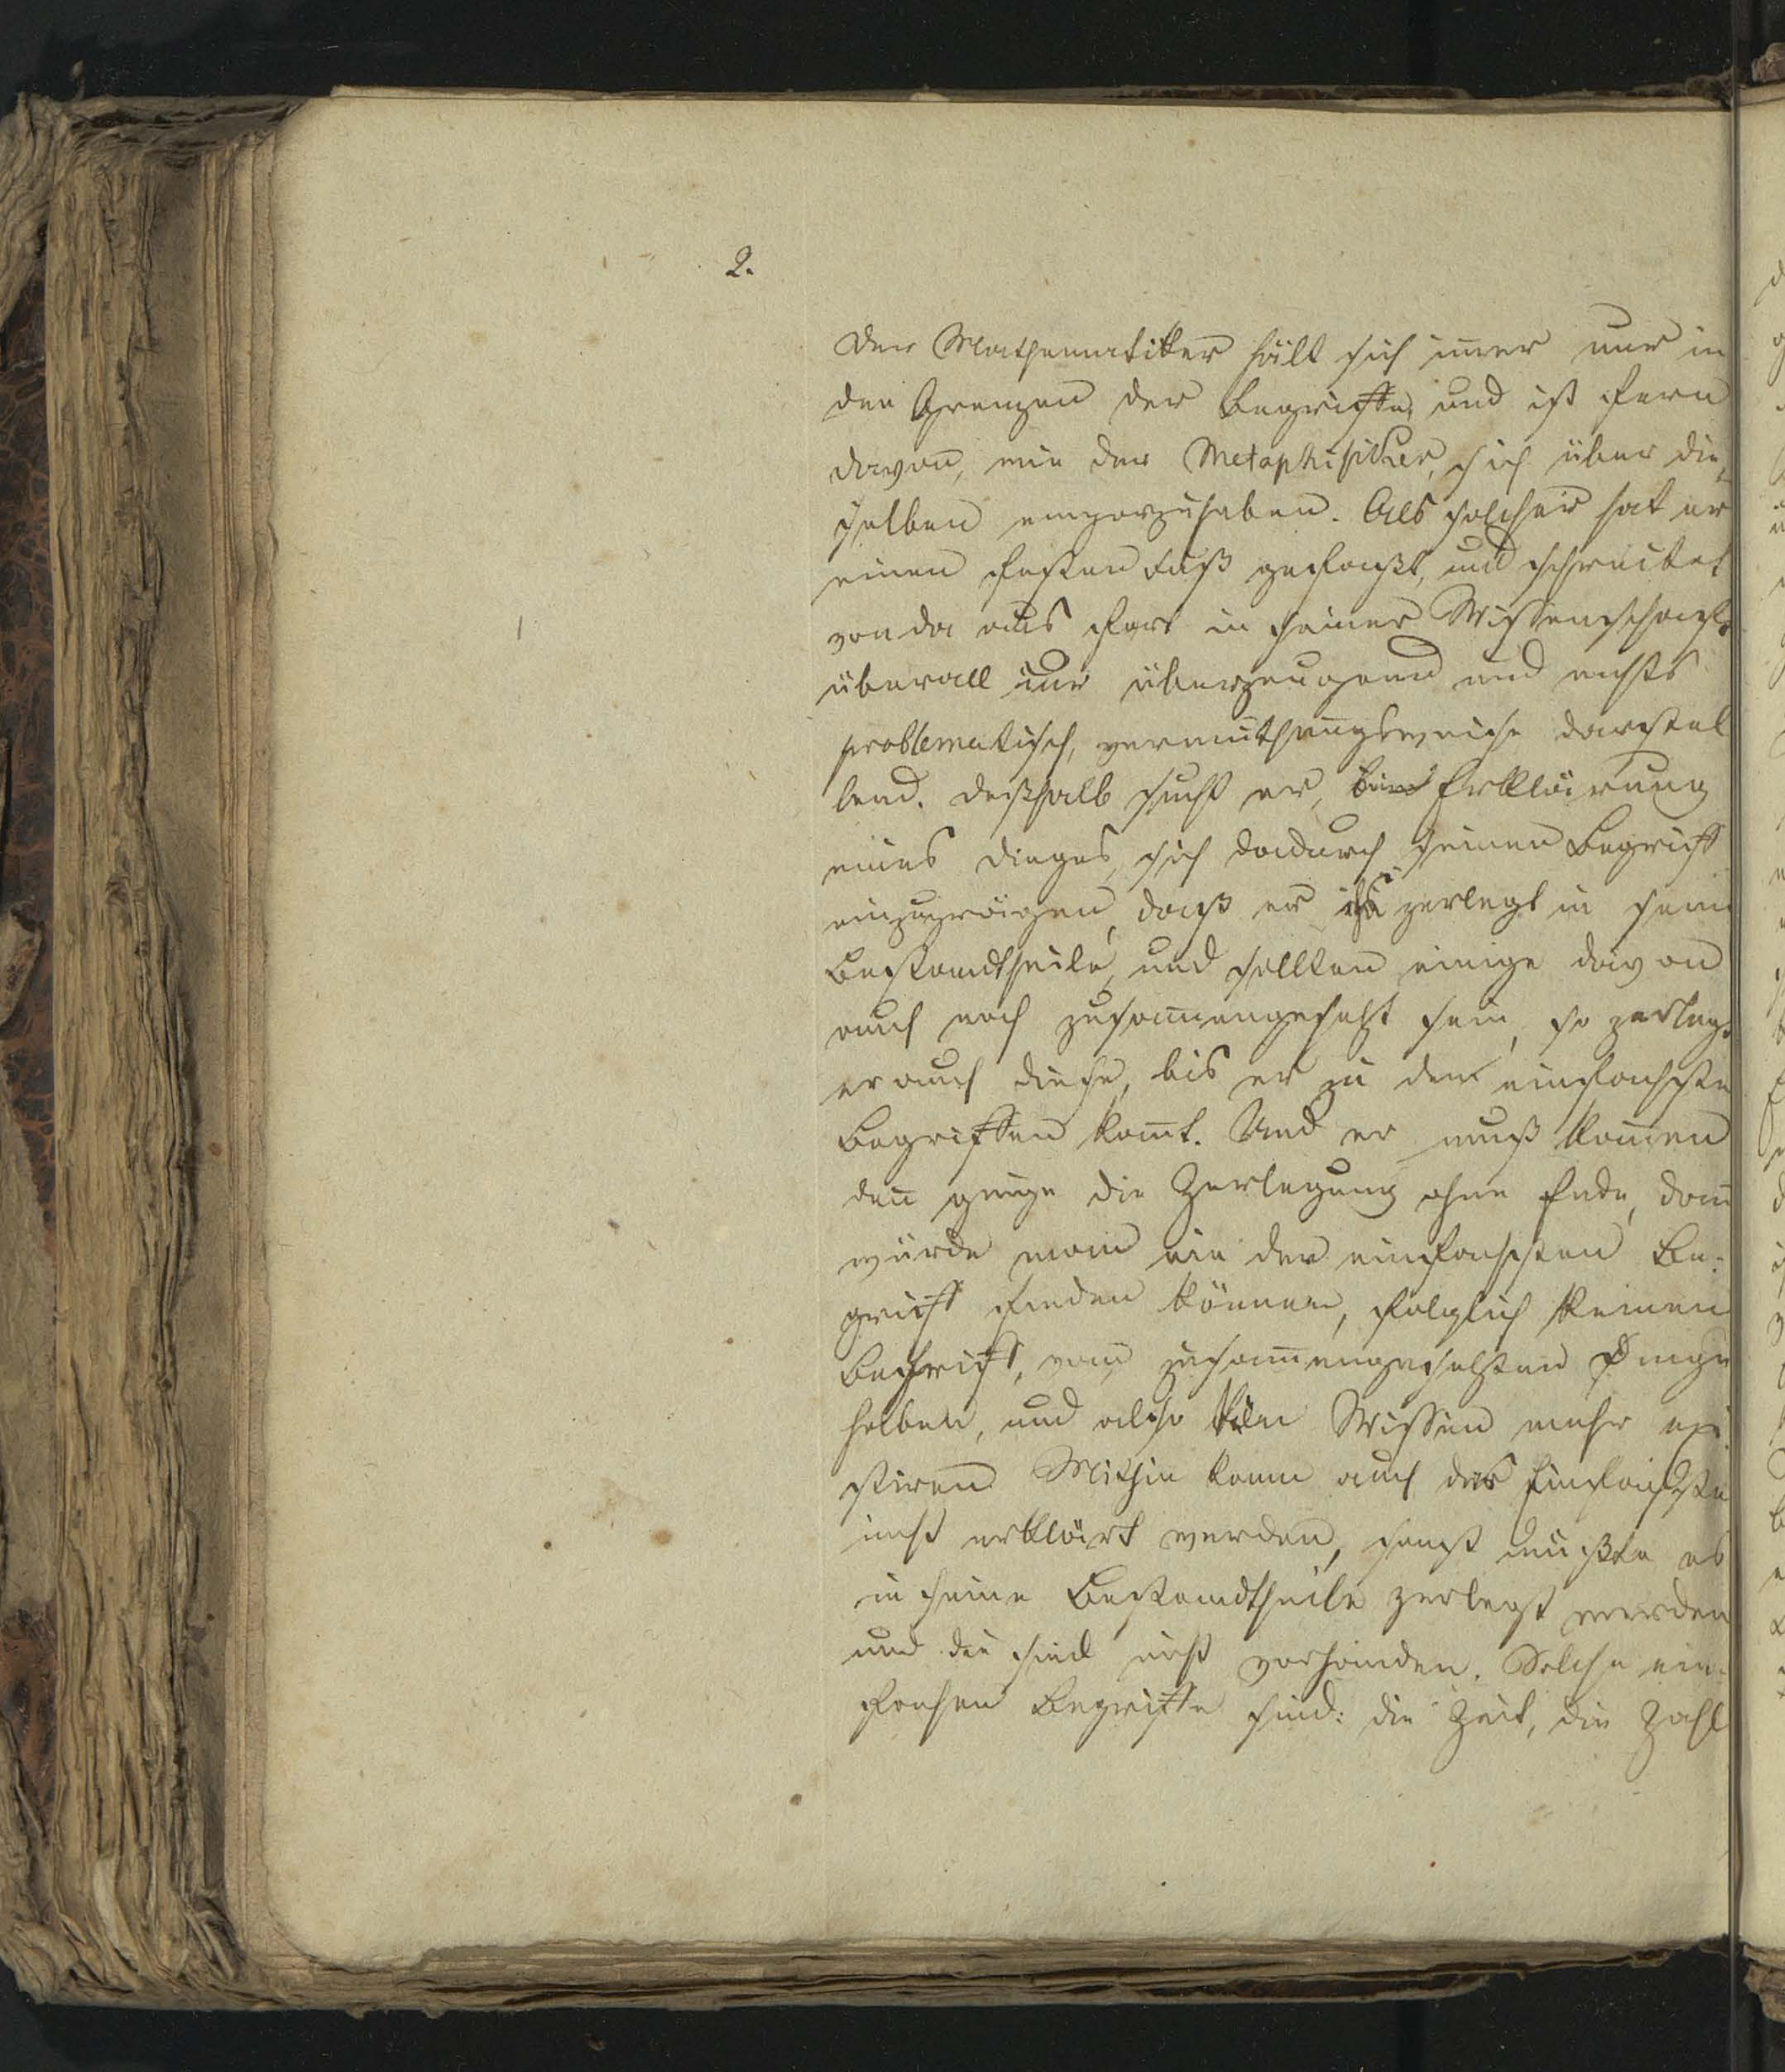 2.
Der Mathematiker hält sich im̄er nur in
den Grenzen der Begriffe, und ist fern
davon, wie der Metaphisicker, sich über die„
selben emporzuheben. Als solcher hat er
einen festen Fuß gefaßt, und schreitet
von da aus fort in seiner Wissenschaft.
überall nur überzeugend und nichts
problematisch, vermuthungsweise darstel
lend. Deßhalb sucht er, Erklärung
eines Dinges, sich dadurch seinen Begriff
einzuprägen, daß er zerlegt in sein
Bestandtheile, und sollten einige davon
auch noch zusam̄engesetzt sein, so zerlegt
er auch diese, bis er zu den einfachste
Begriffen kom̄t. Und er muß kom̄en
den̄ ginge die Zerlegung ohne Ende, dan̄
würde man nie den einfachsten Be:
griff finden können, folglich keinen
Begriff, vom zusam̄engesetzten Dinge
haben, und also kein Wissen mehr exi
stiren. Mithin kann auch das Einfachste
nicht erklärt werden, sonst müßte es
in seine Bestandtheile zerlegt werden
und die sind nicht vorhanden. Solche ein„
fachen Begriffe sind: die Zeit, die Zahl